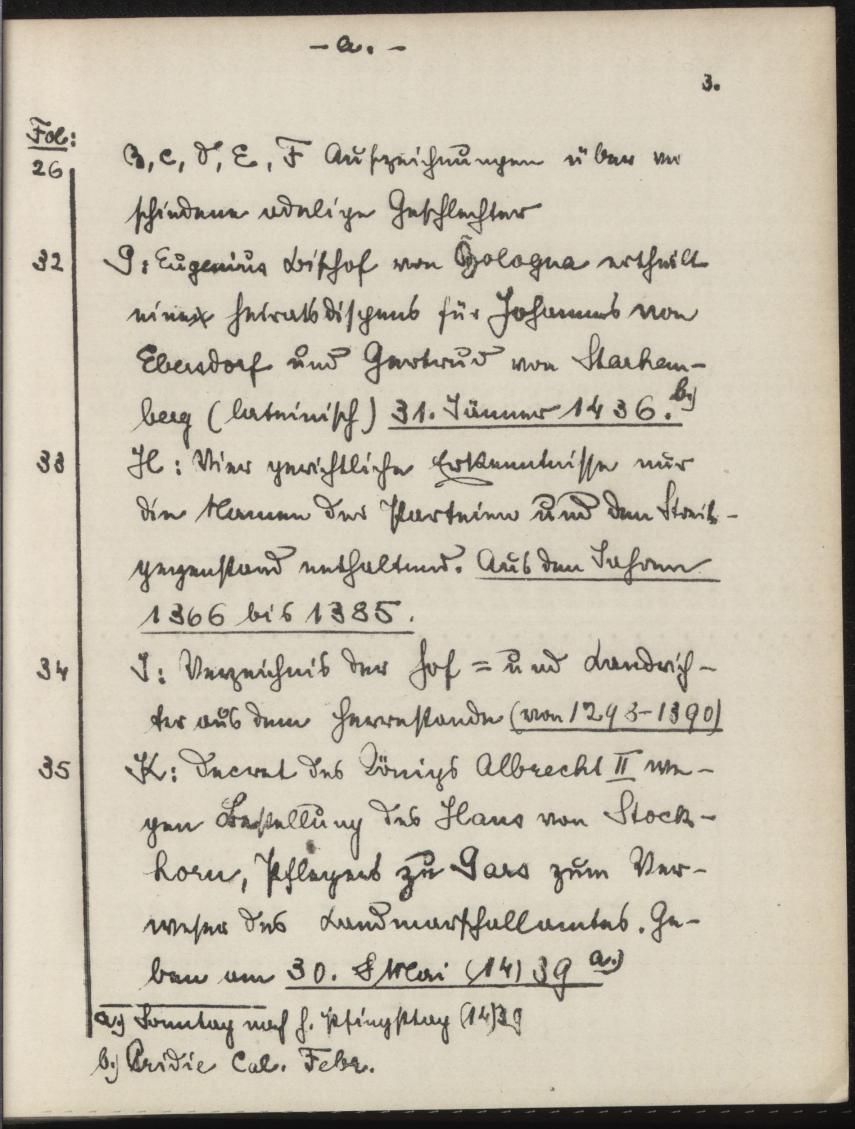 – a. –
3.
Fol:
26 B, C, D, E, F Aufzeichnungen über ver
schiedene adelige Geschlechter
32 G: Eugenius Bischof von Bologna ertheilt
eine Heiratsdispens für Johannes von
Ebersdorf und Gertrud von Starhem-
berg (lateinisch) 31. Jänner 1436. b.)
33 H: Vier gerichtliche Erkenntnisse nur
die Namen der Parteien und den Streit-
gegenstand enthaltend. Aus den Jahren
1366 bis 1385.
34 I: Verzeichnis der Hof= und Landrich-
ter aus dem Herrenstande (von 1298-1390)
35 K: Decret des Königs Albrecht II we-
gen Bestellung des Hans von Stock-
horn, Pflegers zu Gars zum Ver-
weser des Landmarschallamtes. Ge-
ben am 30. Mai (14)39 a.)
a.) Sonntag nach h. Pfingsttag (14)39
b.) Pridie Cal. Febr.